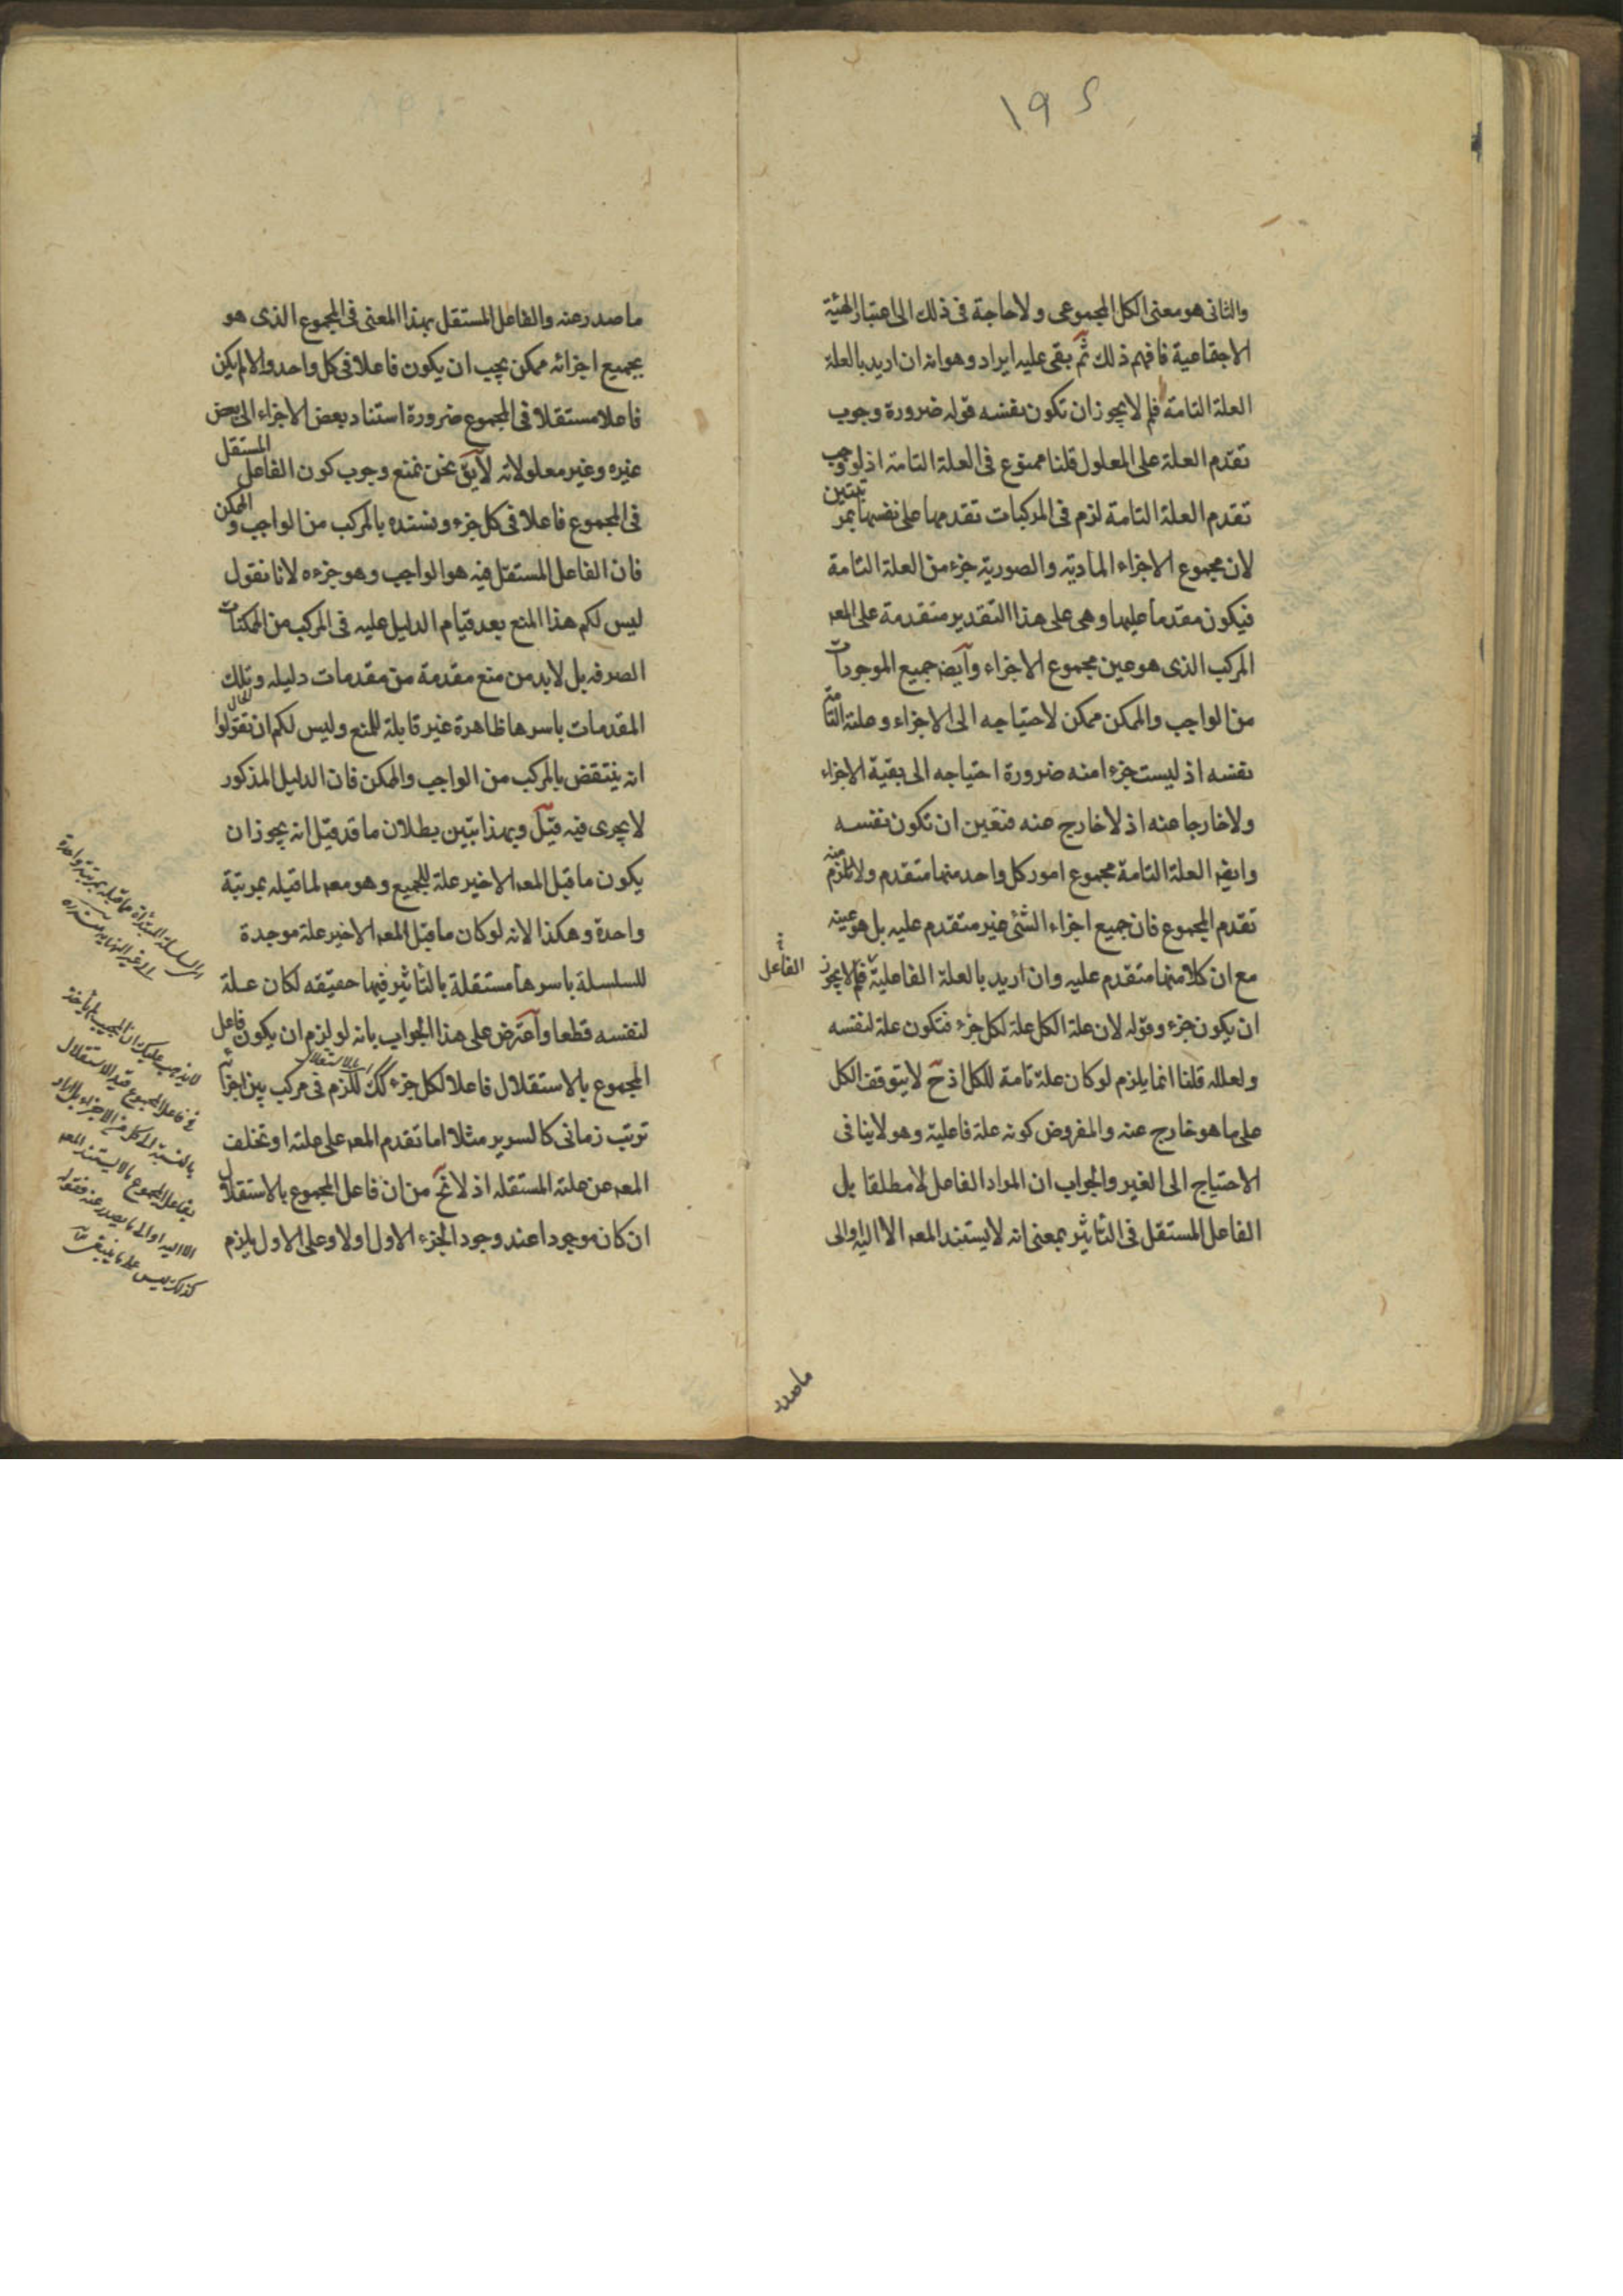 ١٩٥
والثانى هو معنى الكل المجموعى ولا حاجة فى ذلك الى اعتبار الهيئة
الاجتماعية فافهم ذلك ثم بقى عليه ايراد وهو انه ان اريد بالعلة
العلة التامة فلم لا يجوز ان تكون نفسه قوله ضرورة وجوب
تقدم العلة على المعلول قلنا ممنوع فى العلة التامة اذ لو وجب
تقدم العلة التامة لزم فى المركبات تقدمها على نفسها بمرتبتين
لان مجموع الاجزاء المادية والصورية جزء من العلة التامة
فيكون مقدما عليها وهى على هذا التقدير متقدمة على المعه
المركب الذى هو عين مجموع الاجزاء وايضه جميع الموجودات
من الواجب والممكن ممكن لاحتياجه الى الاجزاء وعلته التامة
نفسه اذ ليست جزءا منه ضرورة احتياجه الى بقية الاجزاء
ولا خارجا عنه اذ لا خارج عنه فتعين ان تكون نفسه
وايضه العلة التامة مجموع امور كل واحد منها متقدم ولا يلزم منه
تقدم المجموع فان جميع اجزاء الشئ غير متقدم عليه بل هو عينه
مع ان كلا منها متقدم عليه وان اريد بالعلة الفاعلية فلم لا يجوز
الفاعل
ان يكون جزء وقوله لان علة الكل علة لكل جزء فتكون علة لنفسه
ولعلله قلنا انما يلزم لو كان علة تامة للكل اذ ح لا يتوقف الكل
على ما هو خارج عنه والمفروض كونه علة فاعلية وهو لا ينافى
الاحتياج الى الغير والجواب ان المراد الفاعل لا مطلقا بل
الفاعل المستقل فى التاثير بمعنى انه لا يستند المعه الا اليه والى
ما صدر
ما صدر عنه والفاعل المستقل بهذا المعنى فى المجموع الذى هو
بجميع اجزائه ممكن يجب ان يكون فاعلا فى كل واحد والا لم يكن
فاعلا مستقلا فى المجموع ضرورة استناد بعض الاجزاء الى بعض
غيره وغير معلولاته لا يق نحن نمنع وجوب كون الفاعل المستقل
فى المجموع فاعلا فى كل جزء ونسنده بالمركب من الواجب والممكن
فان الفاعل المستقل فيه هو الواجب وهو جزءه لانا نقول
ليس لكم هذا المنع بعد قيام الدليل عليه فى المركب من الممكنات
الصرفه بل لا بد من منع مقدمة من مقدمات دليله وتلك
المقدمات باسرها ظاهرة غير قابلة للمنع وليس لكم ان تقولوا
انه ينتقض بالمركب من الواجب والممكن فان الدليل المذكور
لا يجرى فيه قيل وبهذا تبين بطلان ما قد قيل انه يجوز ان
يكون ما قبل المعه الاخير علة للجميع وهو معه لما قبله بمرتبة
واحدة وهكذا لانه لو كان ما قبل المعه الاخير علة موجدة
للسلسلة باسرها مستقلة بالتاثير فيها حقيقه لكان علة
لنفسه قطعا واعترض على هذا الجواب بانه لو لزم ان يكون فاعل
المجموع بالاستقلال فاعلا لكل جزء كك للزم فى مركب بين اجزائه
اى بالاستقلال
ترتب زمانى كالسرير مثلا اما تقدم المعه على علته او تخلف
المعه عن علته المستقله اذ لا يخ من ان فاعل المجموع بالاستقلال
ان كان موجودا عند وجود الجزء الاول اولا وعلى الاول يلزم
لا يذهب عليك ان المجيب لم ياخذ
فى فاعل المجموع قيد الاستقلال
بالنسبة الى كل من الاجزاء بل اراد
بفاعل المجموع ما لا يستند المعه
الا اليه او الى ما يصدر عنه فقوله
كذلك ليس على ما ينبغى